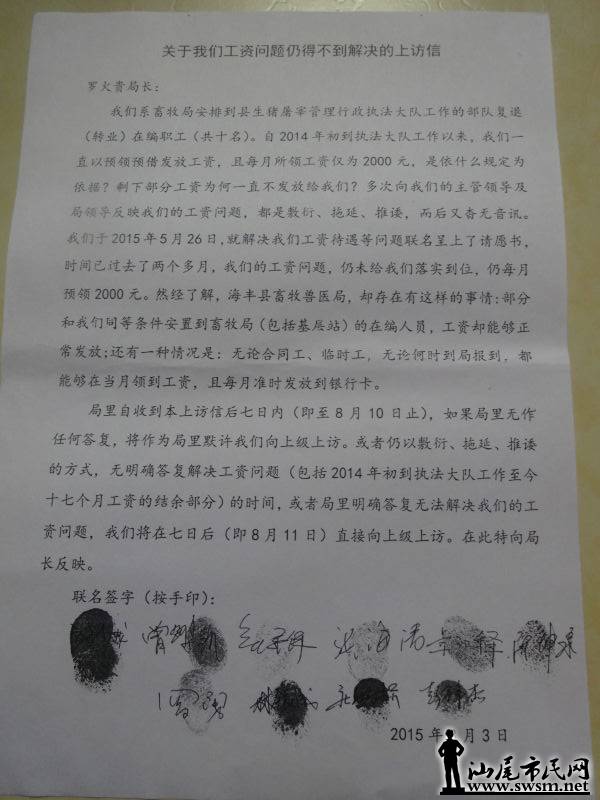 关于我们工资问题仍得不到解决的上访信
罗火贵局长：
我们系畜牧局安排到县生猪屠宰管理行政执法大队工作的部队复退
（转业）在编职工（共十名）。自2014年初到执法大队工作以来，我们一
直以预领预借发放工资，且每月所领工资仅为2000元，是依什么规定为
依据？剩下部分工资为何一直不发放给我们？多次向我们的主管领导及
局领导反映我们的工资问题，都是敷衍、拖延、推诿，而后又杳无音讯。
我们于2015年5月26日,就解决我们工资待遇等问题联名呈上了请愿书,
时间已过去了两个多月，我们的工资问题，仍未给我们落实到位，仍每月
预领2000元。然经了解，海丰县畜牧兽医局，却存在有这样的事情:部分
和我们同等条件安置到畜牧局（包括基层站）的在编人员，工资却能够正
常发放;还有一种情况是：无论合同工、临时工，无论何时到局报到，都
能够在当月领到工资，且每月准时发放到银行卡。
局里自收到本上访信后七日内（即至8月10日止），如果局里无作
任何答复，将作为局里默许我们向上级上访。或者仍以敷衍、拖延、推诿
的方式，无明确答复解决工资问题（包括2014年初到执法大队工作至今
十七个月工资的结余部分）的时间，或者局里明确答复无法解决我们的工
资问题，我们将在七日后（即8月11日）直接向上级上访。在此特向局
长反映。
联名签字（按手印）：
2015年 月3日
汕尾市民网
www.swsm.net